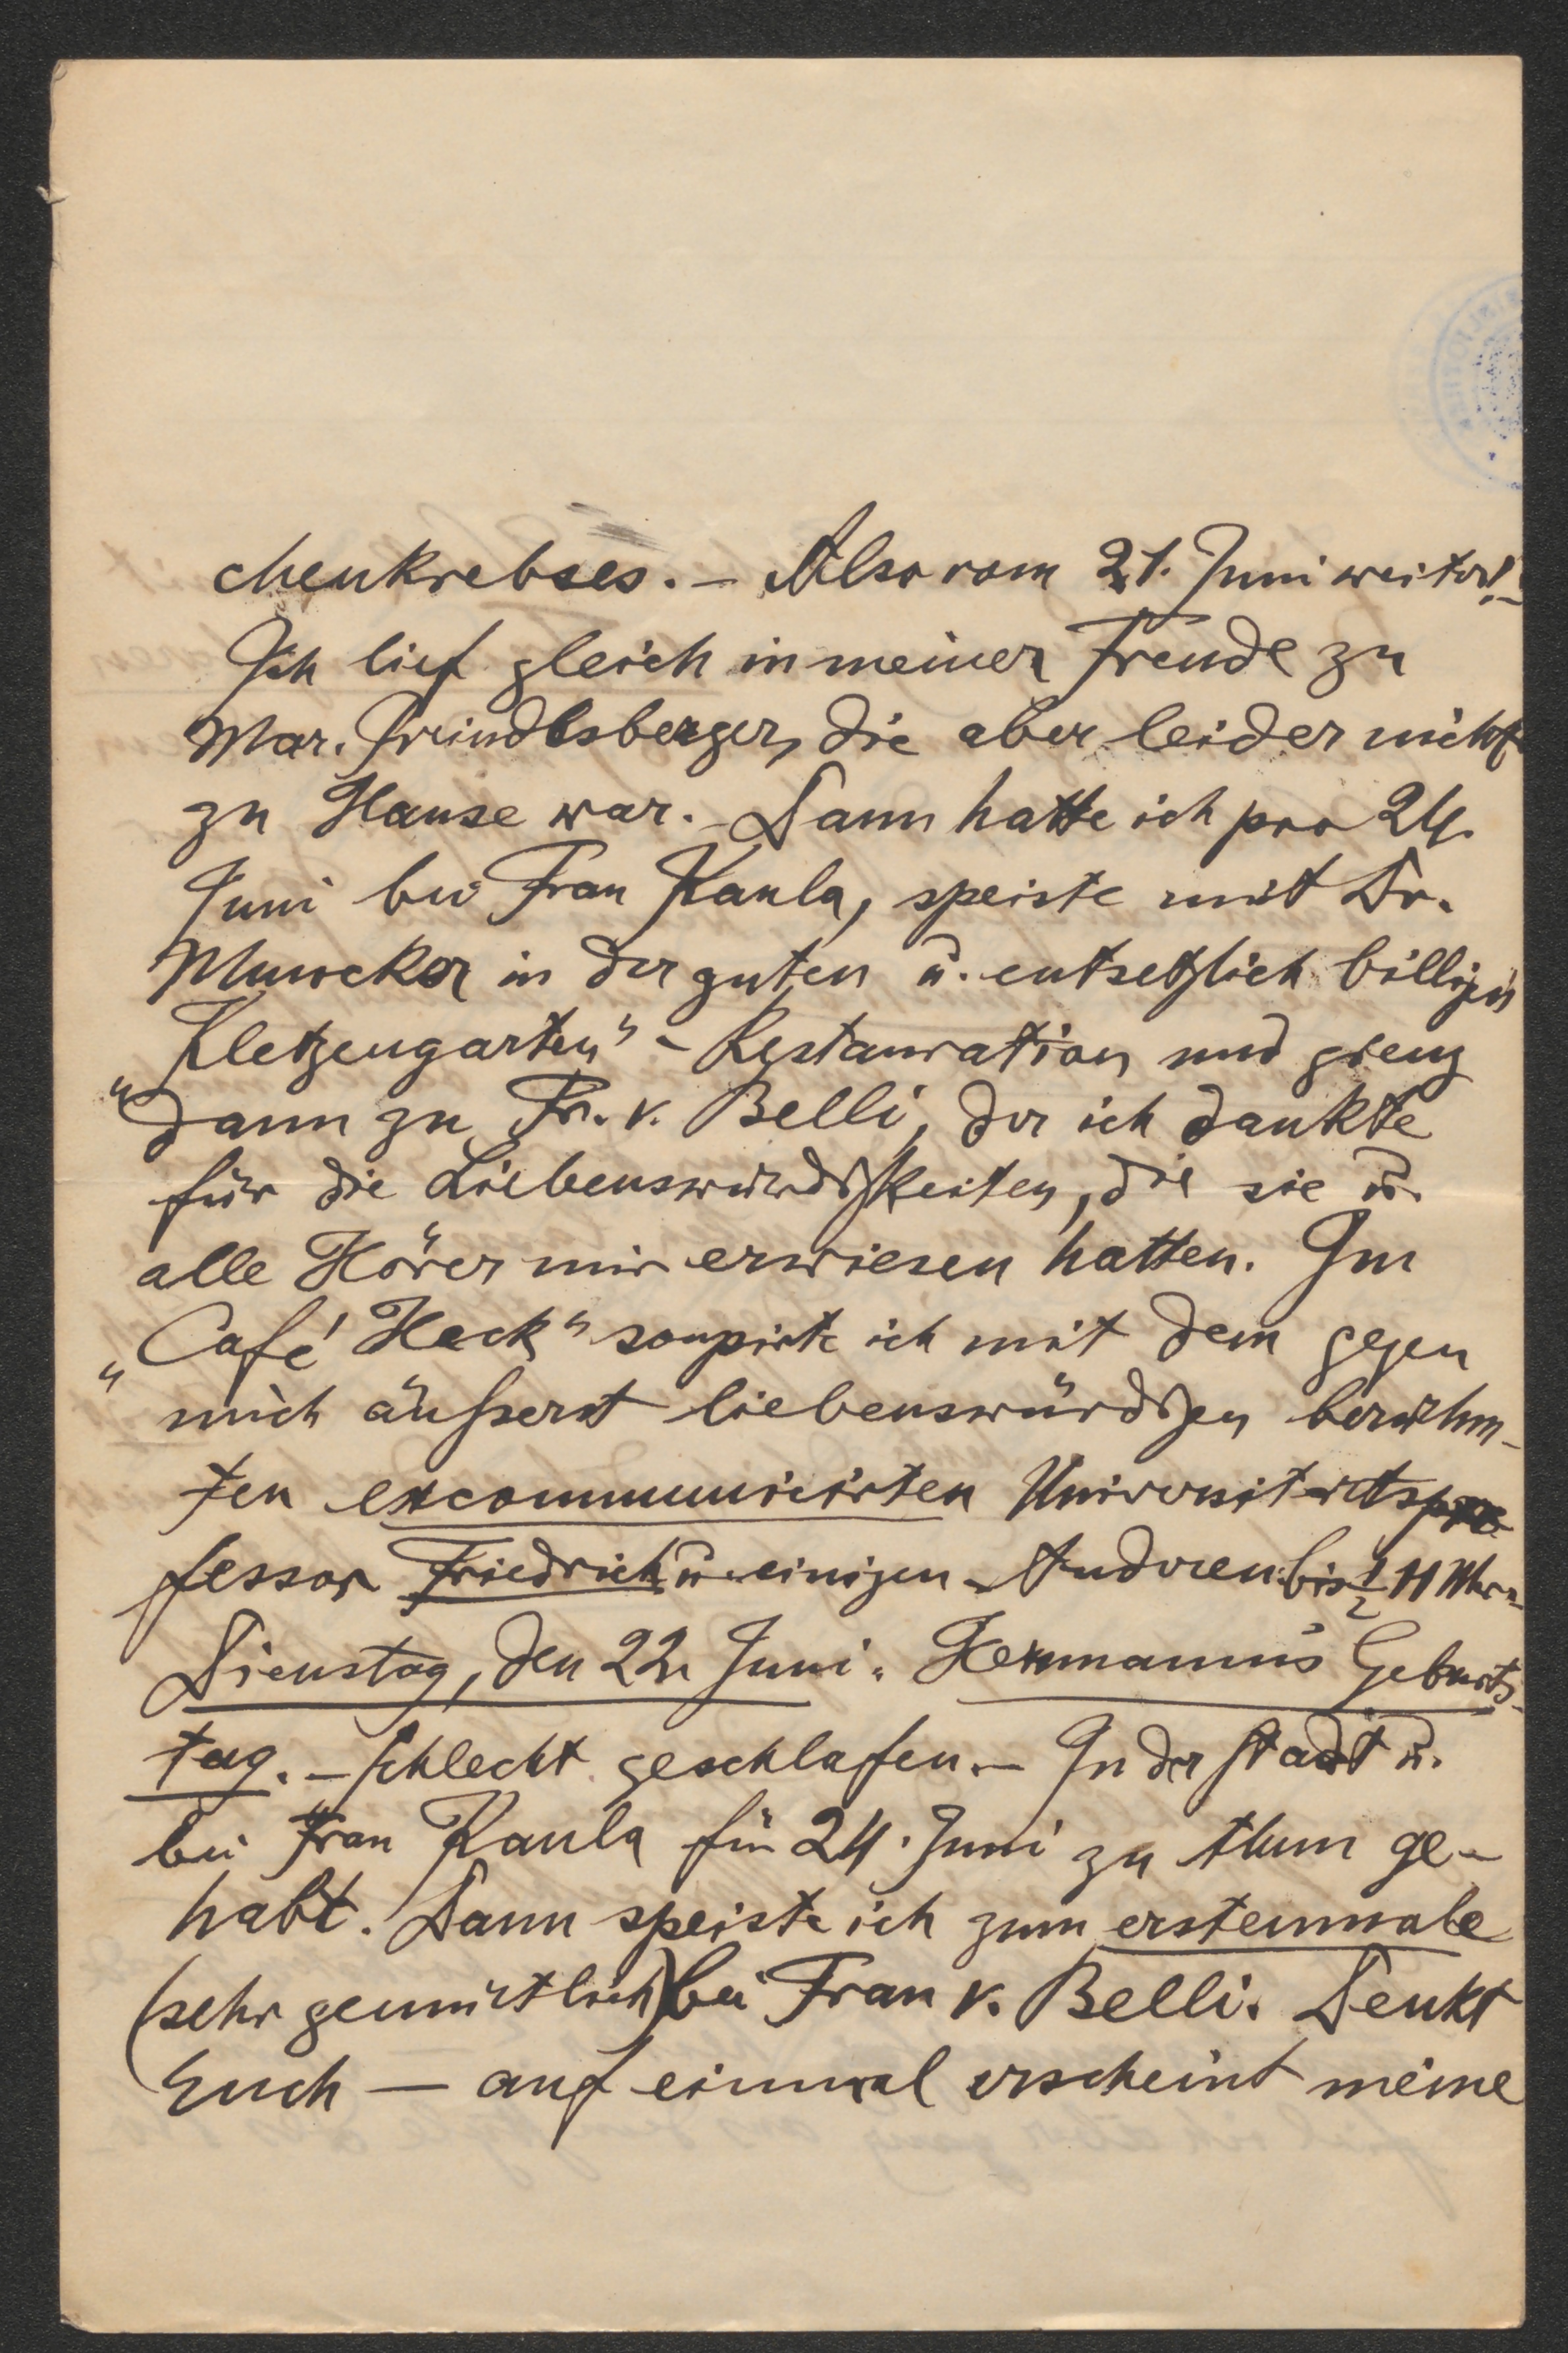 chenkrebses. – Also vom 21. Juni weiter! –
Ich lief gleich in meiner Freude zu
Mar. Preindlsberger, die aber leider nicht
zu Hause war. – Dann hatte ich pro 24.
Juni bei Frau Kaula, speiste mit Dr.
Muncker in der guten u. entsetzlich billigen
„Kletzengarten“ – Restauration und gieng
dann zu Fr. v. Belli, der ich dankte
für die Liebenswürdigkeiten, die sie u.
alle Hörer mir erwiesen hatten. Im
„Café Heck“ soupirte ich mit dem gegen
mich äußerst liebenswürdigen berühm-
ten excommunicirten Universitätspro-
fessor Friedrich u. einigen Anderen bis ½ 11 Uhr. –
Dienstag, den 22. Juni. Hermann's Geburts-
tag. – Schlecht geschlafen. – In der Stadt u.
bei Frau Kaula für 24. Juni zu thun ge-
habt. Dann speiste ich zum erstenmale
(sehr gemütlich) bei Frau v. Belli. Denkt
Euch — auf einmal erscheint meine